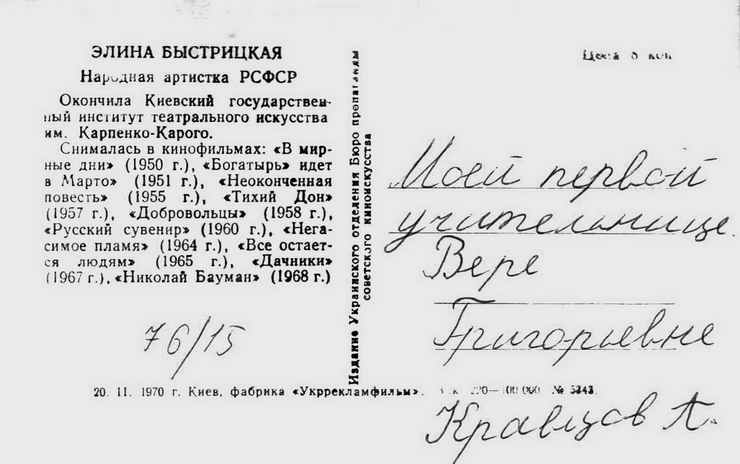 ЭЛИНА БЫСТРИЦКАЯ
Народная артистка РСФСР
Окончила Киевский государствен-
ный институт театрального искусства
им. Карпенко-Карого.
Снималась в кинофильмах: «В мир-
ные дни» (1950 г.), «Богатырь» идет
в Марто» (1951 г.), «Неоконченная
повесть» (1955 г.), «Тихий Дон»
(1957 г.), «Добровольцы» (1958 г.),
«Русский сувенир» (1960 г.), «Нега-
симое пламя» (1964 г.), «Все остает-
ся людям» (1965 г.), «Дачники»
(1967 г.), «Николай Бауман» (1968 г.)
76/15
20. 11. 1970 г. Киев, фабрика «Укррекламфильм».
100 000 №
Издание Украинского отделения Бюро пропаганды
советского киноискусства
Цена коп
Моей первой
учительнице
Вере
Григорьевне
Кравцов А.